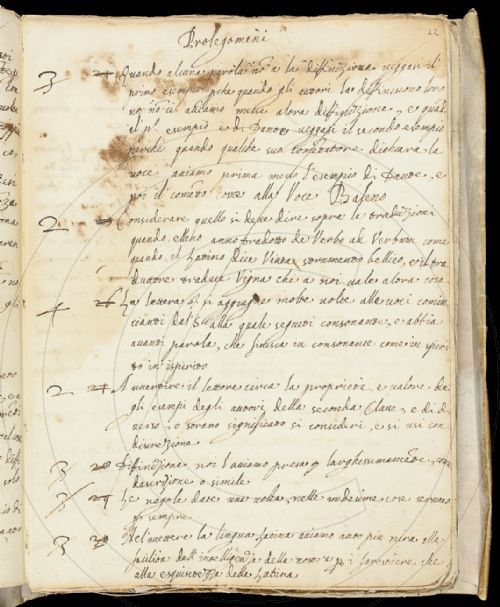 22
Prolegomeni
3 Quando alcuna parola non a la diffinizione veggasi il
primo esempio, perche quando gli autori la diffiniscono loro
noi non ci abbiamo messa altra diffinizione, e qual
il po esempio e di Dante veggasi il secondo esempio
perche quando qualche suo comentatore dichiara la
voce aviamo prima messo l'esempio di Dante, e
poi il comento come alla Voce Baleno
2 Considerare quello si deve dire sopra le traduzioni
quando elleno anno tradotto de Verbo ad Verbum come
quando il Latino dice Vinea strumento bellico, e il tra
duttore traduce Vigna che a noi vale altra cosa
La lettera si aggiugne molte volte alle voci comin
cianti dal S alla quale seguiti consonante, e abbia
avanti parola, che finisca in consonante come in ispiri
to in ispirito
2 Avvertire il lettore circa la proprietà, e valore de
gli esempi degli autori della seconda Classe, e di d
verso, o strano significato si consideri, e si usi con
discrezione
3 28 Diffinizione noi l'aviamo presa larghissimamente,
descrizione o simile
29 Le regole date una volta nelle medesime cose servano
per sempre
3 30 Nel mettere la lingua latina aviamo auto più mira alla
facilità dell'intelligenza della nostra forestiere, che
alla esquisitezza della latina